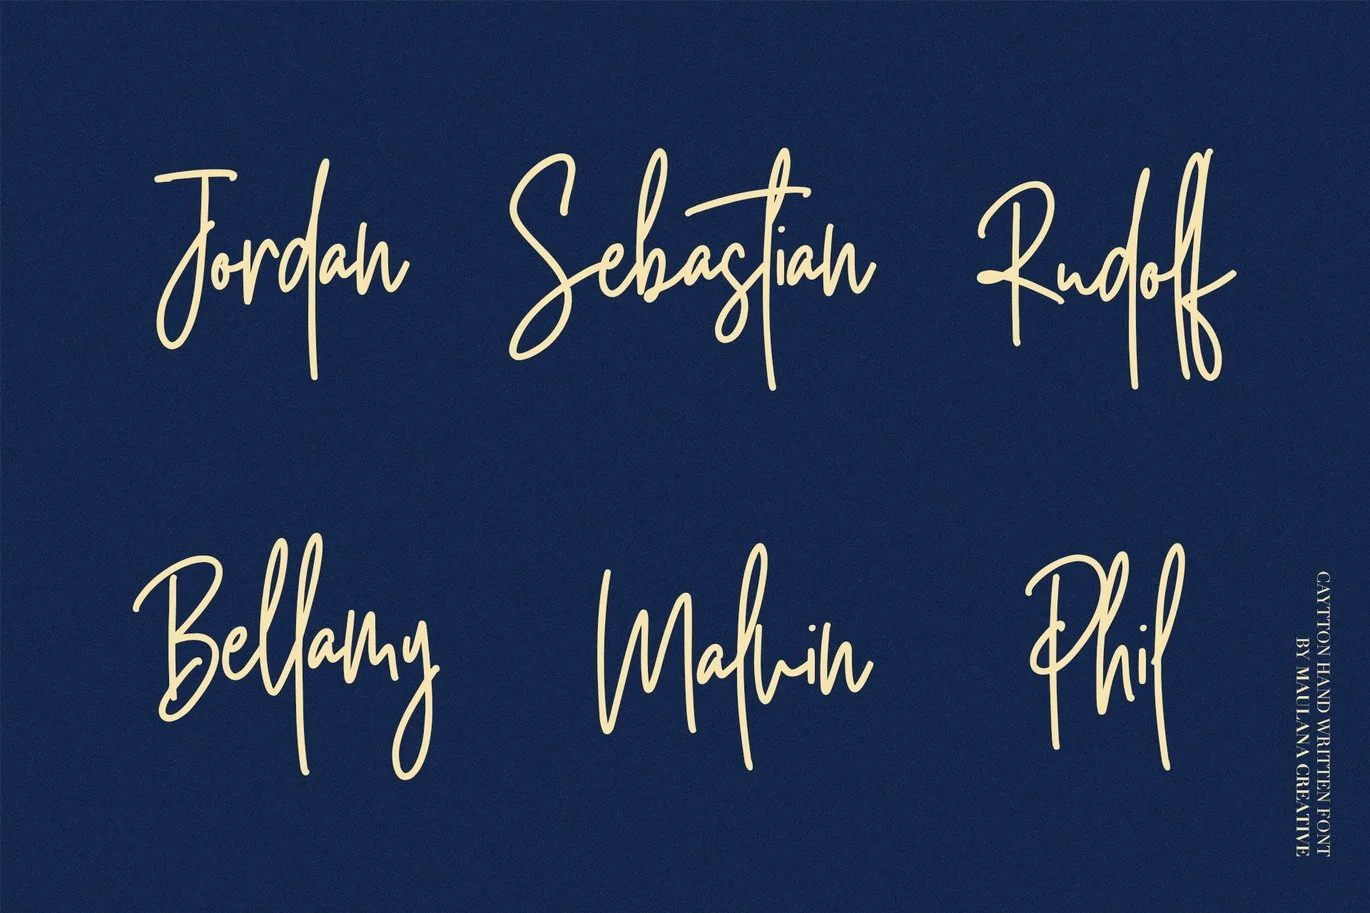 Jordan Sebastian Rudolf
Bellamy Malvin Phil
CAYTTON HAND WRITTEN FONT
BY MAULANA CREATIVE